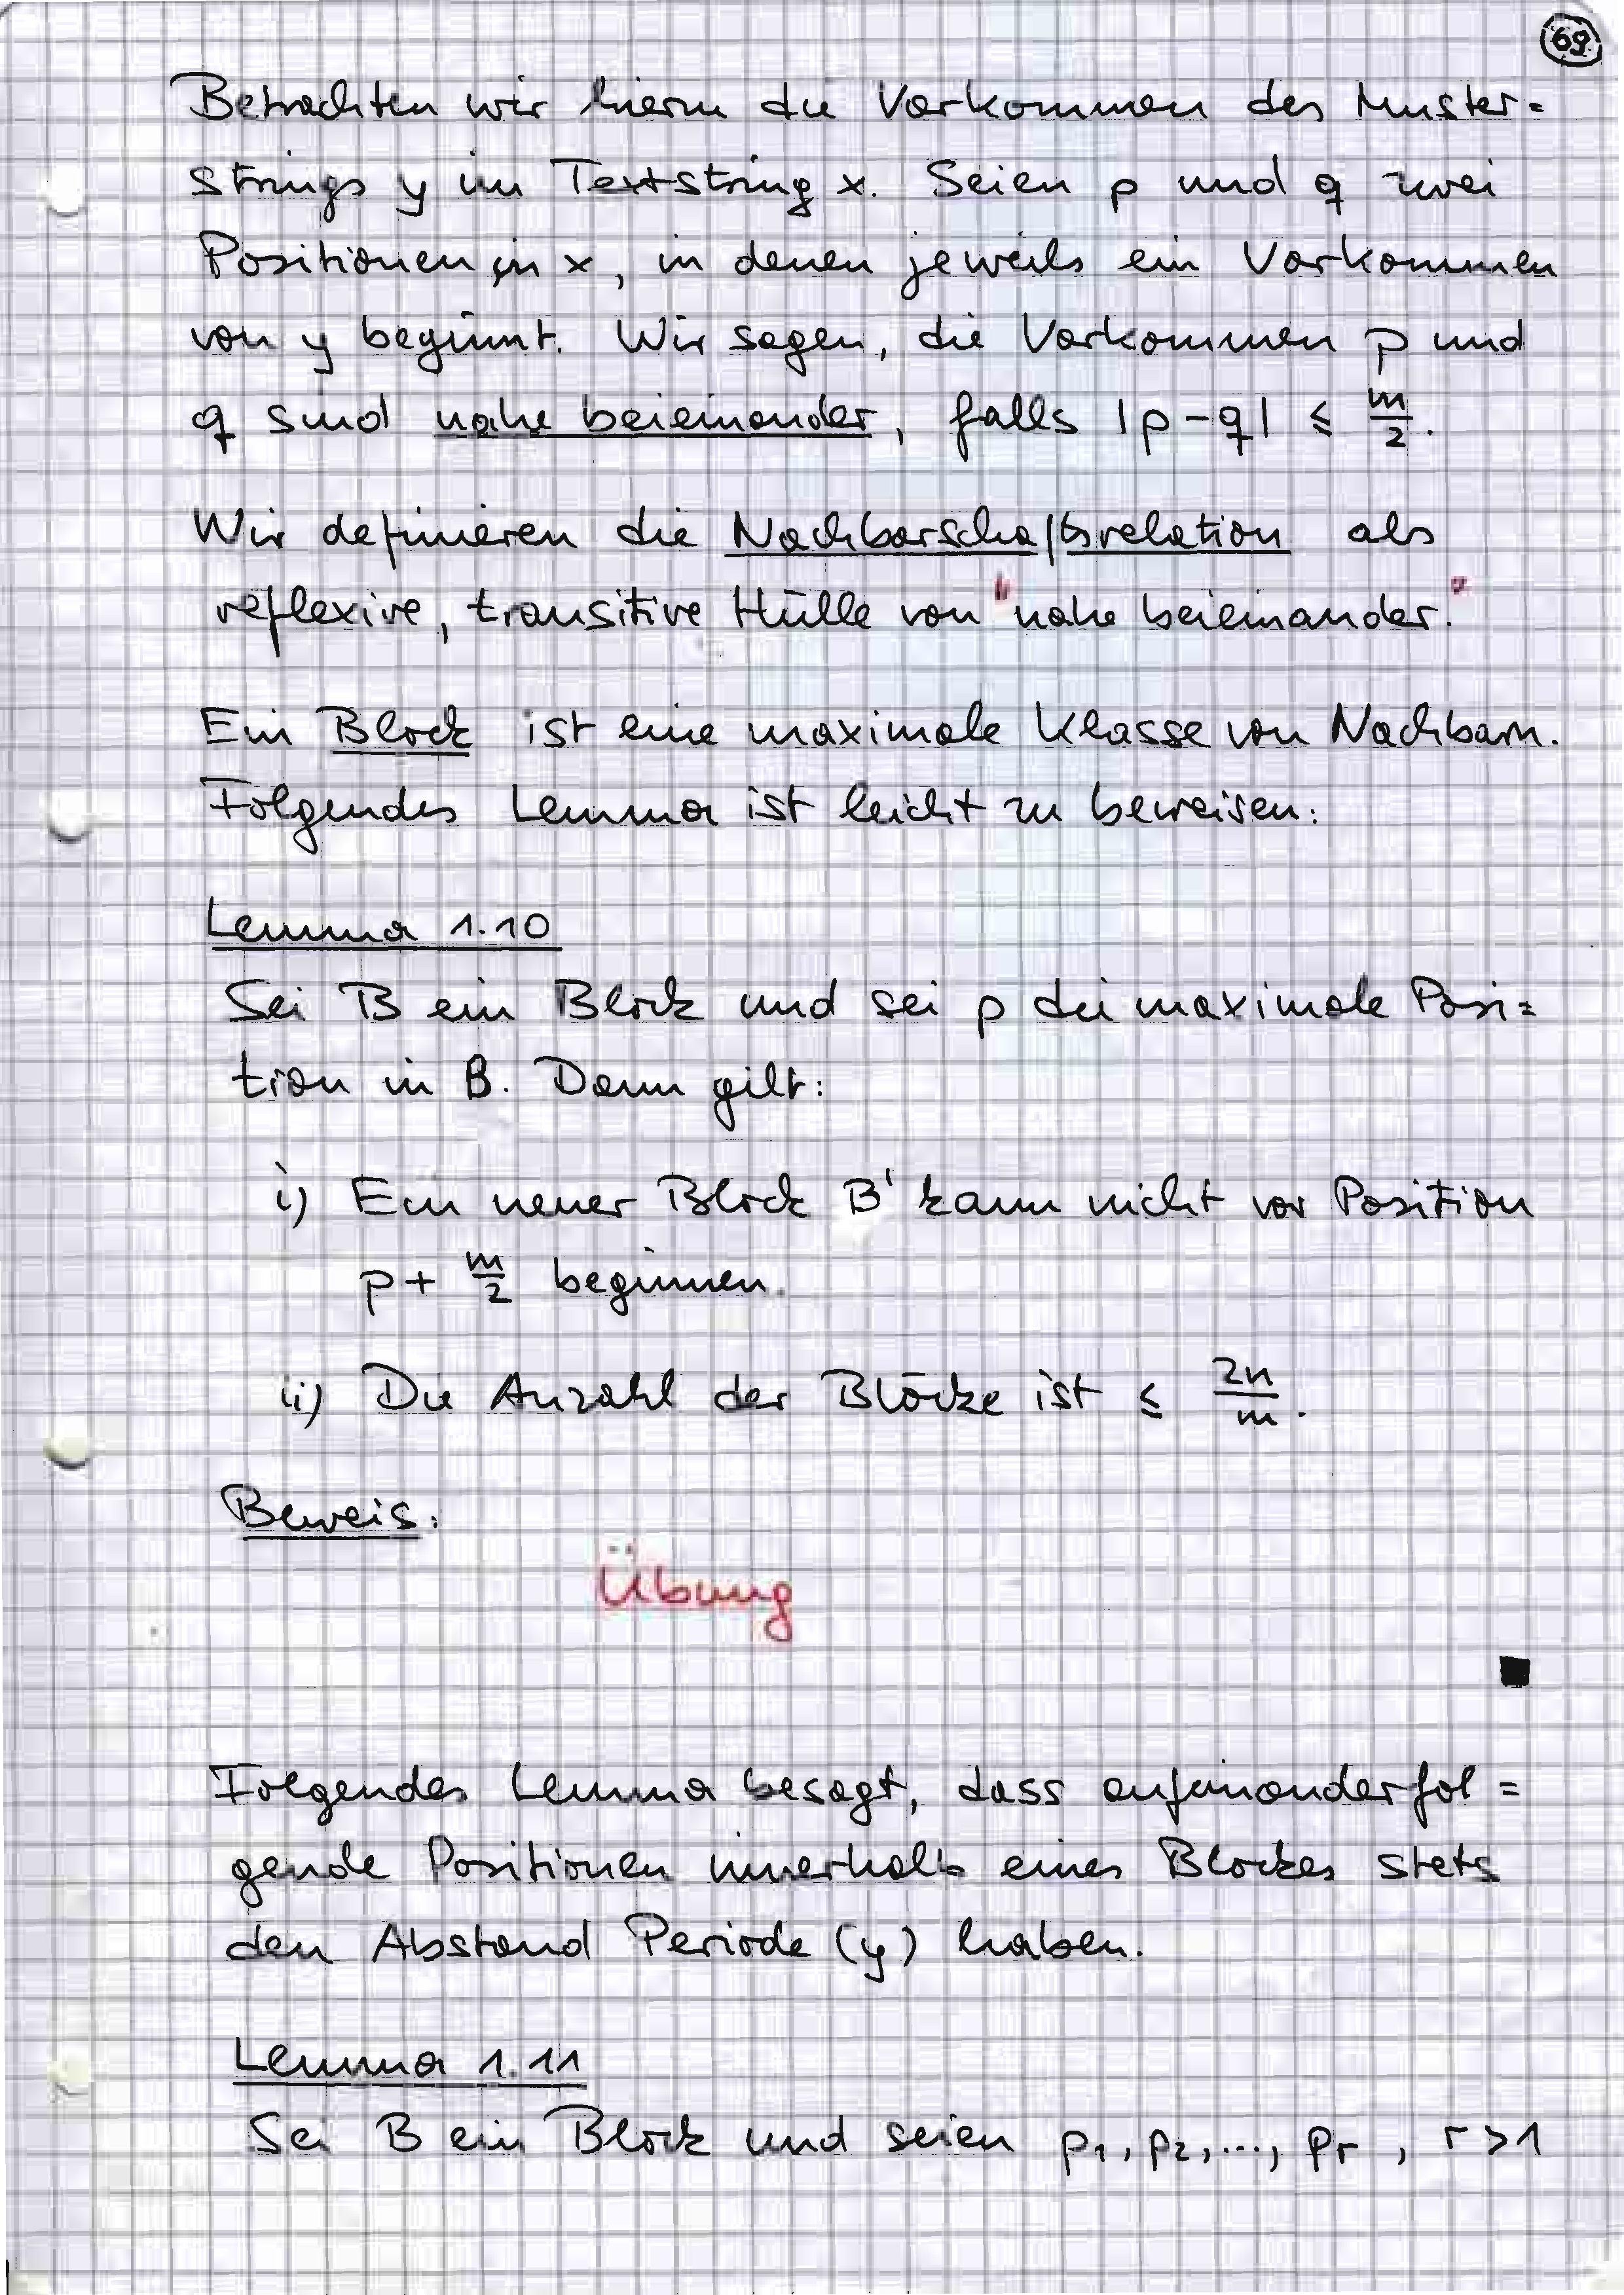 69
Betrachten wir hierzu die Vorkommen des Muster=
strings y im Textstring x. Seien p und q zwei
Positionen in x, in denen jeweils ein Vorkommen
von y beginnt. Wir sagen, die Vorkommen p und
q sind nahe beieinander, falls |p-q| ≤ m/2.
Wir definieren die Nachbarschaftsrelation als
reflexive, transitive Hülle von "nahe beieinander."
Ein Block ist eine maximale Klasse von Nachbarn.
Folgendes Lemma ist leicht zu beweisen:
Lemma 1.10
Sei B ein Block und sei p die maximale Posi=
tion in B. Dann gilt:
i) Ein neuer Block B' kann nicht vor Position
p + m/2 beginnen.
ii) Die Anzahl der Blöcke ist ≤ 2n/m.
Beweis:
Übung
■
Folgendes Lemma besagt, dass aufeinanderfol=
gende Positionen innerhalb eines Blockes stets
den Abstand Periode (y) haben.
Lemma 1.11
Sei B ein Block und seien p₁, p₂, ..., pᵣ, r > 1